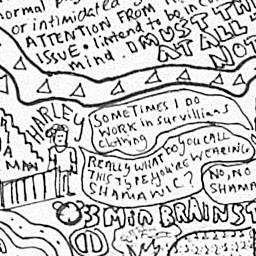 normal
or intimidated
ATTENTION FROM
ISSUE. I intend to be in co
mind. MUST THI
AT ALL
NOT
HARLEY
MAN
SOMETIMES I DO
WORK in survillians
clothing
REALLY WHAT DO YOU CALL
THIS TYPE YOU'RE WEARING
SHAMANIC?
NO, NO
SHAMA
3 Min BRAINST